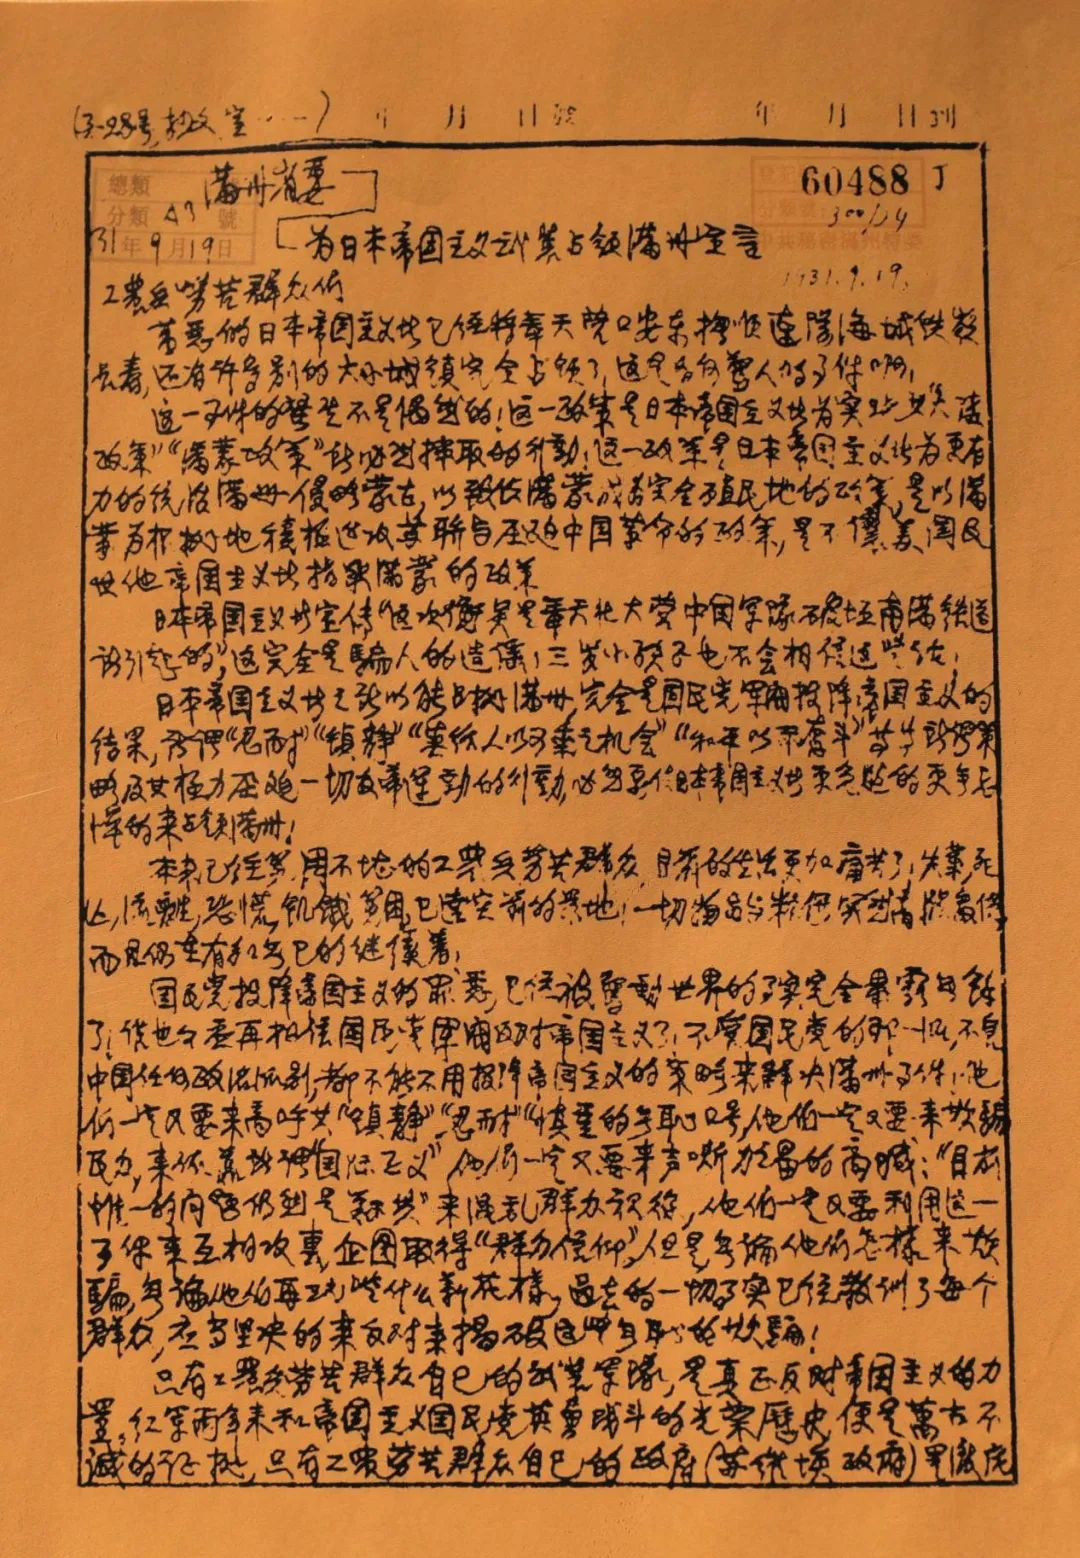 年 月 日
年 月 日到
總類
分類 號
43
满州省委
60488 丁
300/14
31年9月19日
为日本帝国主义武装占领满州宣言
1931.9.19.
工农兵劳苦群众们
万恶的日本帝国主义者已经将奉天营口安东抚顺辽阳海城铁岭
长春,还有许多别的大小城镇完全占领了,这是多么惊人的事件啊!
这一事件的发生不是偶然的!这一政策是日本帝国主义者为实现其“大陆
政策”“满蒙政策”所必然採取的行动!这一政策是日本帝国主义者为更有
力的统治满州,侵略蒙古,以致使满蒙成为完全殖民地的政策,是以满
蒙为根据地积极进攻苏联与压迫中国革命的政策,是不讓美国及
其他帝国主义者指染满蒙的政策
日本帝国主义者宣传“这次衝突是奉天北大营中国军隊破坏南满铁道
所引起的”,这完全是騙人的造謠,三岁小孩子也不会相信这些话!
日本帝国主义者之所以能占据满州,完全是国民党军阀投降帝国主义的
结果,所谓“忍耐”“镇静”“莫给人以可乘之机会”“和平以示奋斗”等等
略及其极力压迫一切反帝运动的行動,必然要使日本帝国主义者更急迫的更无忌
惮的来占领满州!
本来已经穷困不堪的工农兵劳苦群众,目前的生活更加痛苦了,失業死
亡,流離,恐慌,飢餓,貧困,已达空前的景地!一切物品与粮价突然高漲
而且仍在有加无已的继續着!
国民党投降帝国主义的罪恶,已经被震動世界的事实完全暴露无餘
了!谁也不要再相信国民党军阀反对帝国主义了!不管国民党的那一派,不管
中国任何政治派别,都不能不用投降帝国主义的策略来解决满州事件!他
们一定又要来高呼其“镇静”“忍耐”“慎重”的无耻口号,他们一定又要来欺騙
民众,来依靠所谓“国际正义”,他们一定又要来声嘶力竭的高喊:“目前
惟一的问题仍然是剿共”来混乱群众视線,他们一定又要利用这一
事件来互相攻裏,企图取得“群众信仰”,但是无論他们怎樣来欺
騙,无論他们再玩些什么新花樣,过去的一切事实已经教训了每个
群众,应当坚决的来反对来揭破这些无耻的欺騙!
只有工农兵劳苦群众自己的武装军隊,是真正反对帝国主义的力
量,红军两年来和帝国主义国民党英勇战斗的光荣歷史,便是萬古不
滅的证据,只有工农劳苦群众自己的政府(苏维埃政府)是澈底